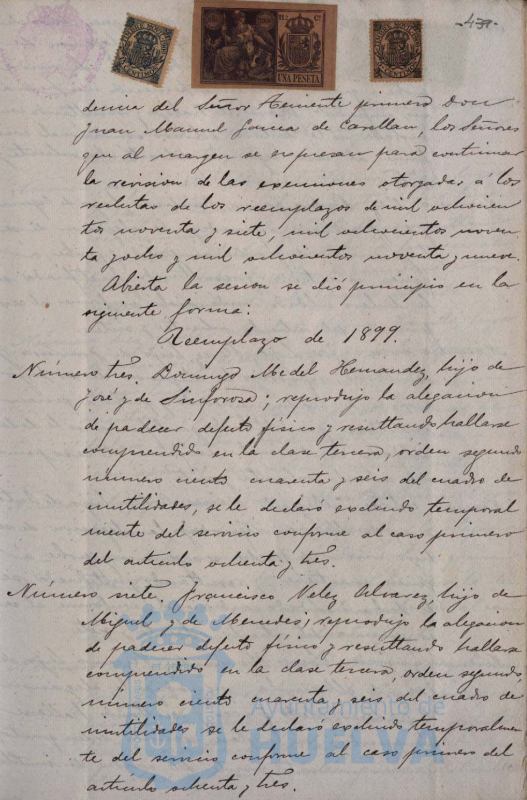 -439-
UNA PESETA
dencia del Señor Teniente primero Don
Juan Manuel García de Casellan, los Señores
que al margen se expresan para continuar
la revision de las exenciones otorgadas á los
reclutas de los reemplazos de mil ochocien
tos noventa y siete, mil ochocientos noven
ta y ocho y mil ochocientos noventa y nueve.
Abierta la sesion se dió principio en la
siguiente forma:
Reemplazo de 1899.
Número tres. Domingo Medel Hernandez, hijo de
José y de Sinforosa; reprodujo la alegacion
de padecer defecto físico y resultando hallarse
comprendido en la clase tercera, orden segundo
numero ciento cuarenta y seis del cuadro de
inutilidades, se le declaró excluido temporal
mente del servicio conforme al caso primero
del articulo ochenta y tres.
Número siete. Francisco Velez Alvarez, hijo de
Miguel y de Mercedes; reprodujo la alegacion
de padecer defecto físico y resultando hallarse
comprendido en la clase tercera, orden segundo,
número ciento cuarenta y seis del cuadro de
inutilidades se le declaró excluido temporalmen
te del servicio conforme al caso primero del
artículo ochenta y tres.
Ayuntamiento de
HUELVA